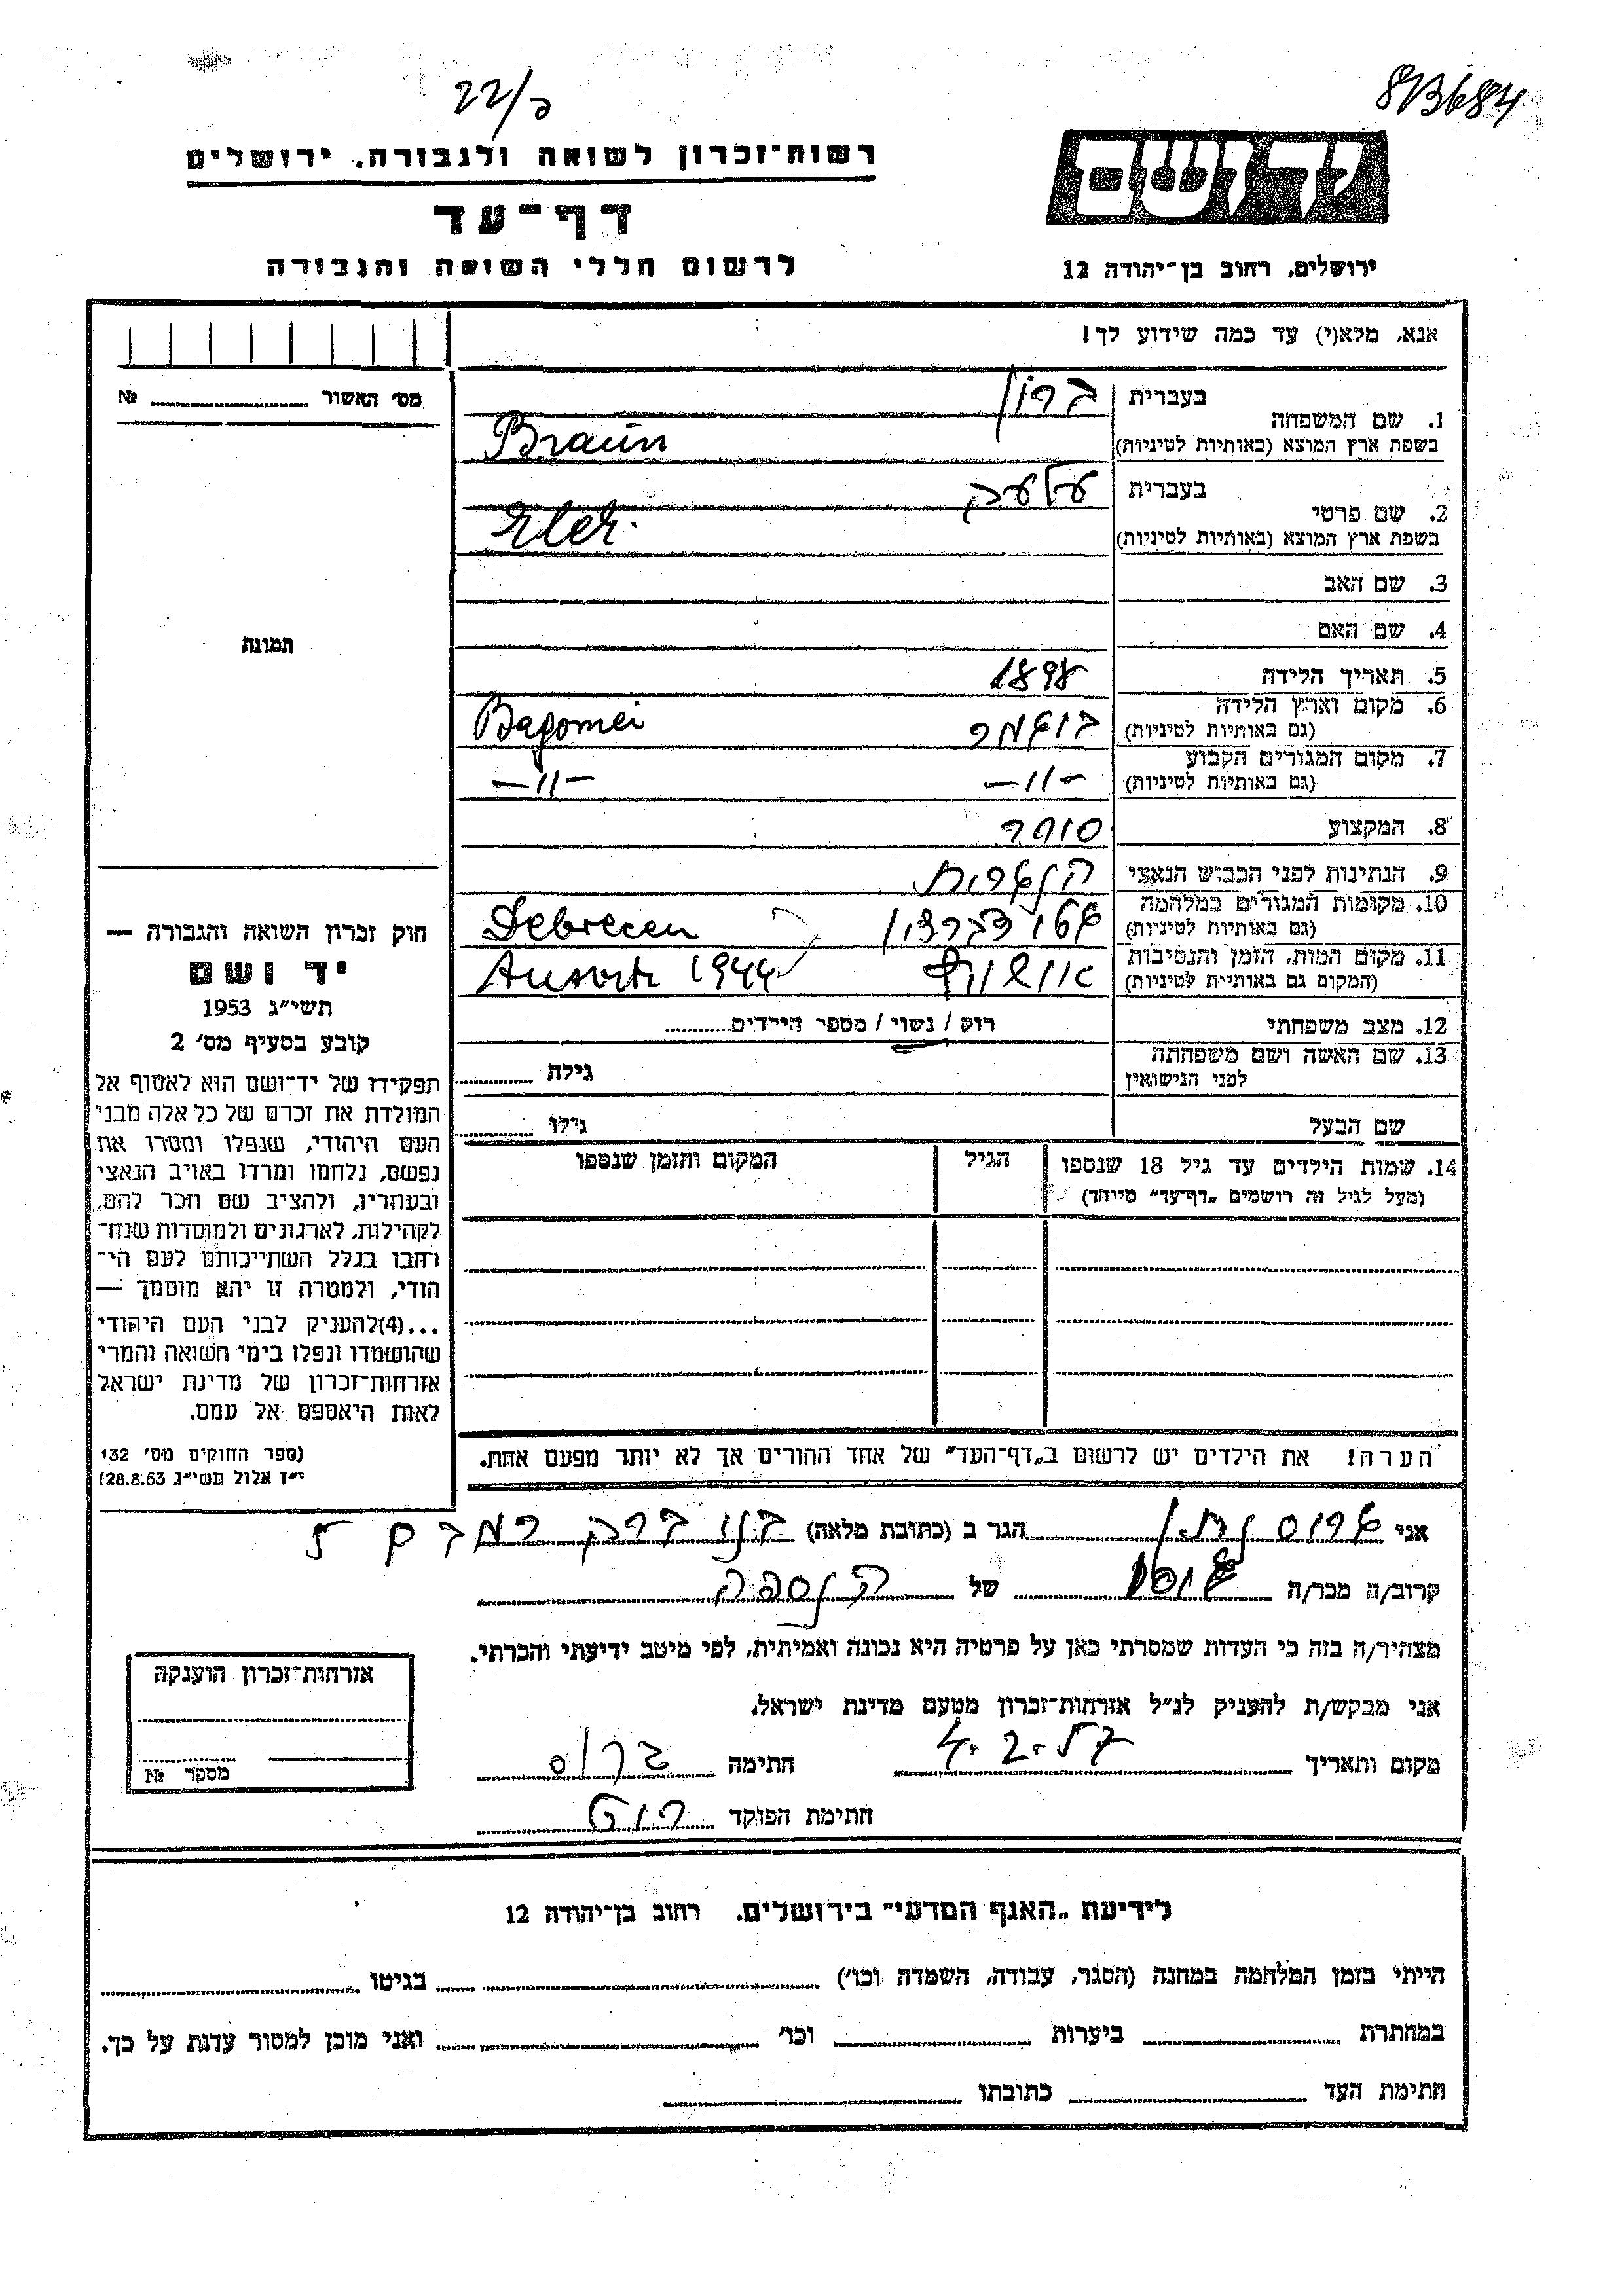 22/ פ
813684
רשות־זכרון לשואה ולגבורה, ירושלים
יד ושם
דף־עד
לרשום חללי השואה והגבורה
ירושלים, רחוב בן־יהודה 12
אנא, מלא(י) עד כמה שידוע לך!
מס׳ האשור № 
1. שם המשפחה
בעברית ברון
בשפת ארץ המוצא (באותיות לטיניות) Braun
2. שם פרטי
בעברית
בשפת ארץ המוצא (באותיות לטיניות)
3. שם האב
4. שם האם
תמונה
5. תאריך הלידה 1898
6. מקום וארץ הלידה
(גם באותיות לטיניות) Bagomei
7. מקום המגורים הקבוע
(גם באותיות לטיניות) —11— —11—
8. המקצוע סוחר
9. הנתינות לפני הכבוש הנאצי הונגרית
10. מקומות המגורים במלחמה
(גם באותיות לטיניות) גטו דברצון Debrecen
11. מקום המות, הזמן והנסיבות
(המקום גם באותיות לטיניות) 1944
12. מצב משפחתי רוק / נשוי / מספר הילדים
13. שם האשה ושם משפחתה
לפני הנישואין גילה
שם הבעל גילו
14. שמות הילדים עד גיל 18 שנספו
(מעל לגיל זה רושמים „דף־עד״ מיוחד)
הגיל
המקום והזמן שנספו
הערה! את הילדים יש לרשום ב„דף־העד״ של אחד ההורים אך לא יותר מפעם אחת.
חוק זכרון השואה והגבורה —
יד ושם
תשי״ג 1953
קובע בסעיף מס׳ 2
תפקידו של יד־ושם הוא לאסוף אל
המולדת את זכרם של כל אלה מבני
העם היהודי, שנפלו ומסרו את
נפשם, נלחמו ומרדו באויב הנאצי
ובעוזריו, ולהציב שם וזכר להם,
לקהילות, לארגונים ולמוסדות שנח־
רחבו בגלל השתייכותם לעם הי־
הודי, ולמטרה זו יהא מוסמך —
...(4)להעניק לבני העם היהודי
שהושמדו ונפלו בימי השואה והמרי
אזרחות־זכרון של מדינת ישראל
לאות היאספם אל עמם.
(ספר החוקים מס׳ 132
י״ז אלול תשי״ג 28.8.53)
אני הגר ב (כתובת מלאה) בני ברק
קרוב/ה מכר/ה של הנספה
מצהיר/ה בזה כי העדות שמסרתי כאן על פרטיה היא נכונה ואמיתית, לפי מיטב ידיעתי והכרתי.
אני מבקש/ת להעניק לנ״ל אזרחות־זכרון מטעם מדינת ישראל.
מקום ותאריך 4.2.57 חתימה
חתימת הפוקד
אזרחות־זכרון הוענקה
מספר №
לידיעת „האגף המדעי״ בירושלים. רחוב בן־יהודה 12
הייתי בזמן המלחמה במחנה (הסגר, עבודה, השמדה וכו׳) בגיטו
במחתרת ביערות וכו׳ ואני מוכן למסור עדות על כך.
חתימת העד כתובתו